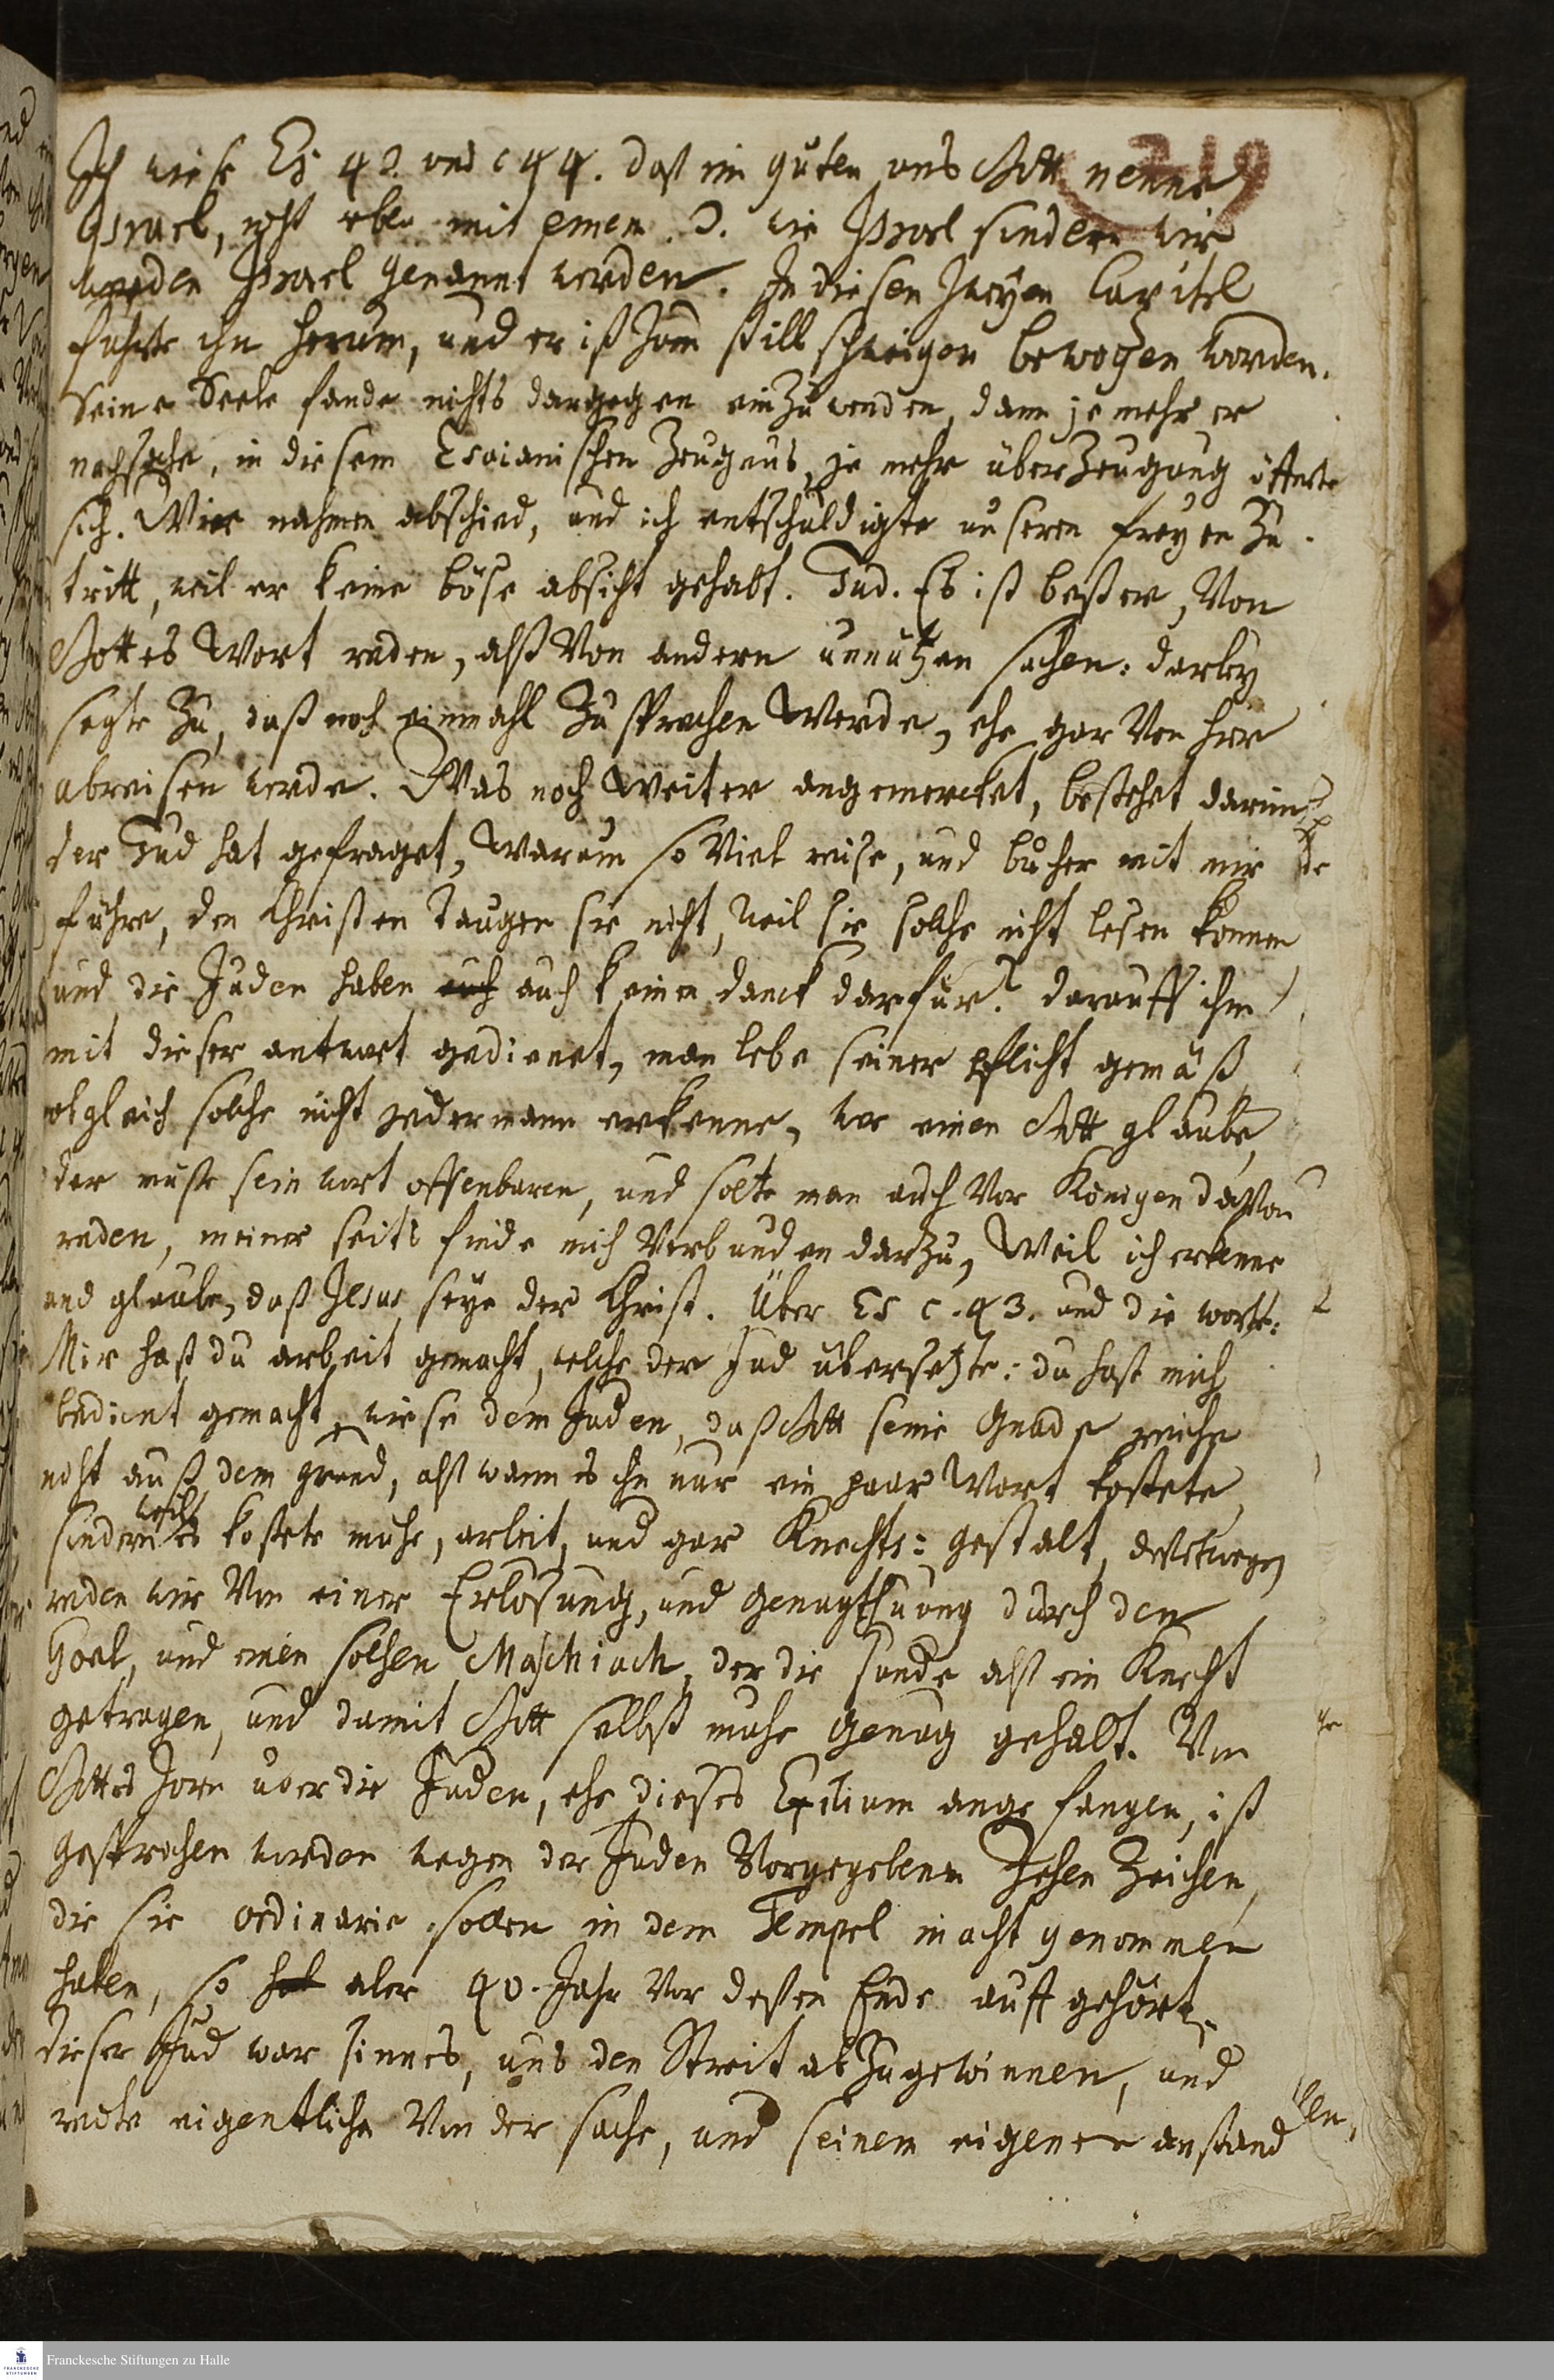 219
Ich wiese Es 42. und c 44. daß im guten uns Gott nenne
Israel, nicht aber mit einem . wie Israel sindern wir
werden Israel genannt werden. In diesen zweyen Capitel
führte ihn herum, und er ist zum still schweigen bewogen worden.
Seine Seele fande nichts dargegen einzuwenden, dann je mehr er
nachsahe, in diesem Esaianischen Zeugnus, je mehr überzeugung öffnete
sich. Wir nahmen abschied, und ich entschuldigte unseren freyen Zu-
tritt, weil er keine böse absicht gehabt. Jud. Es ist besser, Von
Gottes Wort reden, alß Von andern unnützen sachen: darbey
sagte zu, daß noch einmahl zusprechen Werde, ehe gar Von hier
abreisen werde. Was noch Weiter angemercket, bestehet darinn
der Jud hat gefraget, Warum so Viel reise, und bücher mit mir
führe, den Christen taugen sie nicht, weil sie solche nicht lesen können
und die Juden haben auch auch keinen danck darfür? darauff ihm
mit dieser antwort gedienet, man lebe seiner pflicht gemäß
obgleich solche nicht jedermann erkenne, wer einen Gott glaube,
der müste sein wort offenbaren, und solte man auch Vor Königen daVon
reden, meiner seits finde mich Verbunden darzu, Weil ich erkenne
und glaube, daß Jesus seye der Christ. Über Es c. 43. und die worte:
Mir hast du arbeit gemacht, welche der Jud übersetzte: du hast mich
bedient gemacht, wiese dem Juden, daß Gott seine Gnade reiche
nicht auß dem grund, alß wann es ihn nur ein paar Wort kostete,
sindern es kostete mühe, arbeit, und gar Knechts: gestalt, desßwegen
reden wir Von einer Erlösung, und genugthuung durch den
Goel, und einen solchen Maschiach, der die sünde alß ein Knecht
getragen, und damit Gott selbst mühe genug gehabt. Von
Gottes Zorn über die Juden, ehe dieses Exilium angefangen, ist
gesprochen worden wegen der Juden Vorgegebenen Zehen Zeichen,
die sie ordinarie sollen in dem Tempel in acht genommen
haben, so hat aber 40. Jahr Vor deßen Ende auffgehört.
dieser Jud war sinnes, uns den Streit abzugewinnen, und
redte eigentlich Von der sache, und seinem eigenen anstand
Franckesche Stiftungen zu Halle